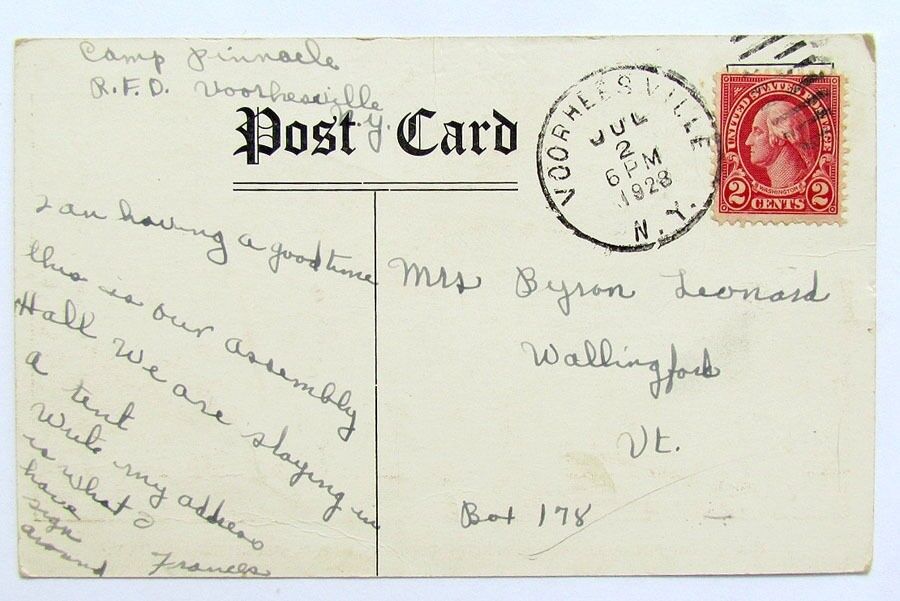 Camp Pinnacle
R.F.D. Voorhesville
N.Y.
Post Card
VOORHEESVILLE
JUL
2
6 PM
1928
N.Y.
UNITED STATES POSTAGE
WASHINGTON
2 CENTS 2
I am having a good time
this is our assembly
Hall We are staying in
a tent
Write my address
is what I
have
sign
around
Frances
Mrs Byron Leonard
Wallingford
Vt.
Box 178